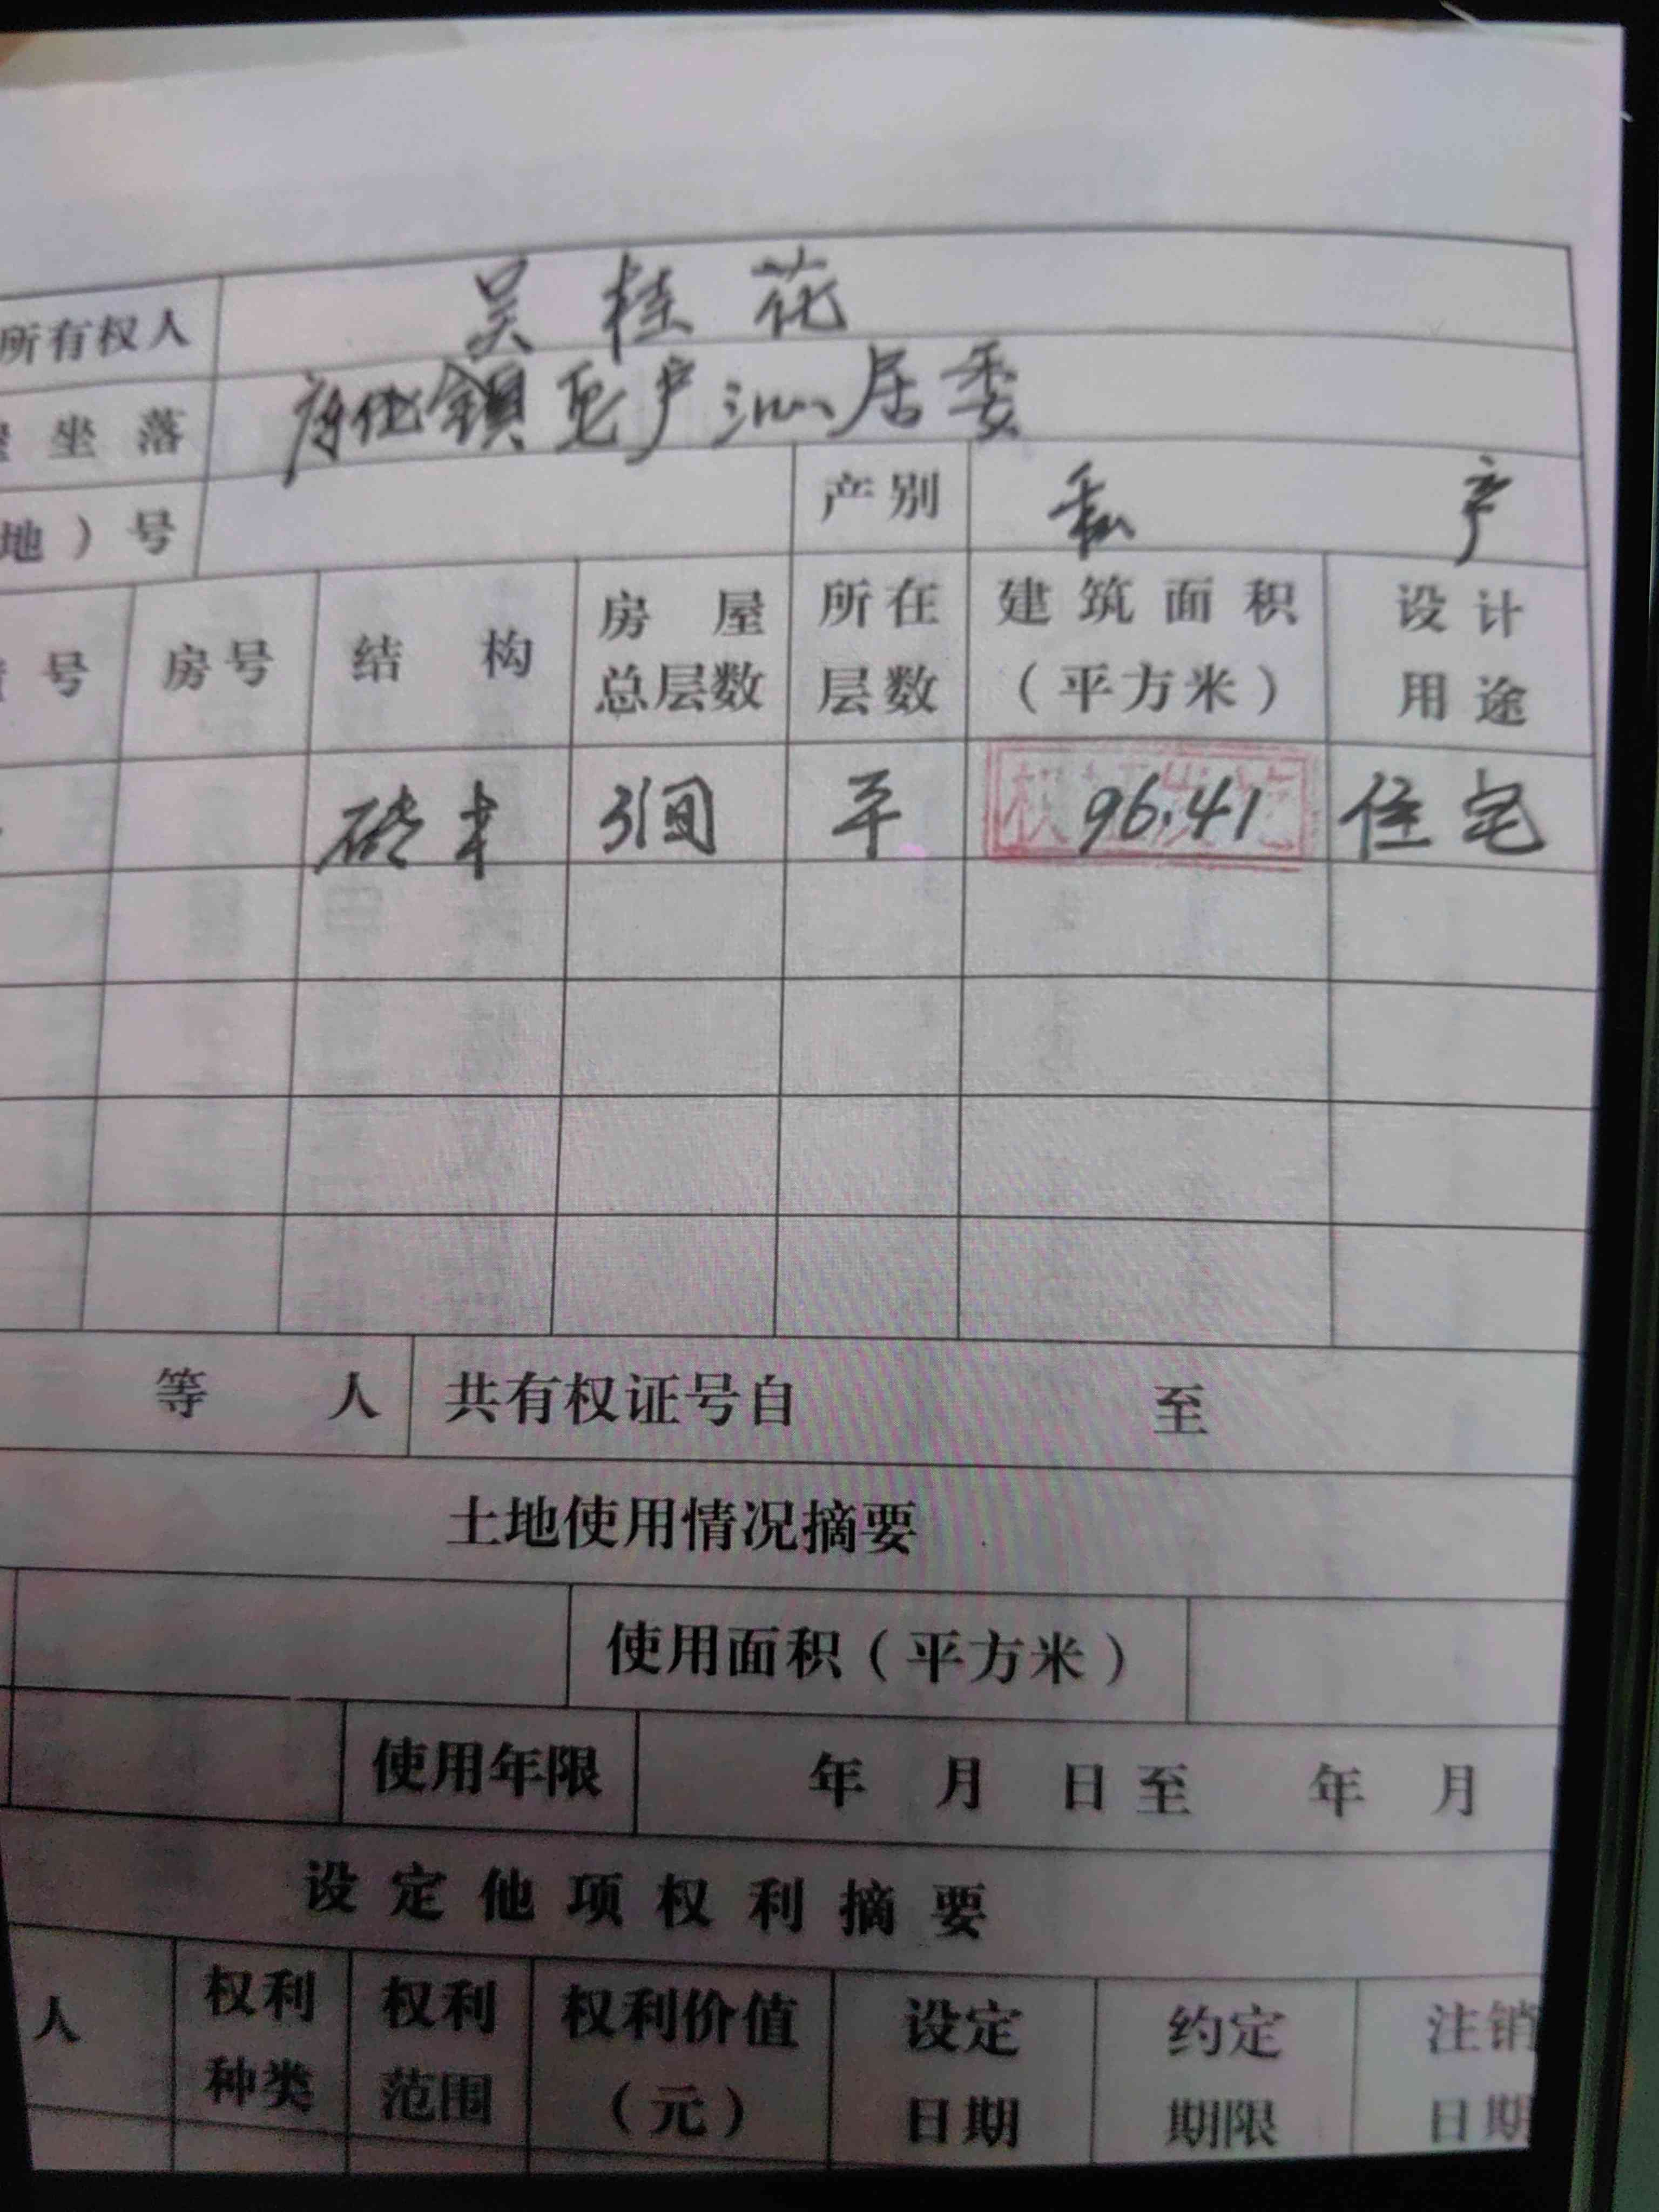 所有权人 吴桂花
坐落 镇 居委
地）号 产别 私产
号 房号 结构 房屋总层数 所在层数 建筑面积（平方米） 设计用途
砖木 3间 平 96.41 住宅
等 人 共有权证号自 至
土地使用情况摘要
使用面积（平方米）
使用年限 年 月 日至 年 月
设定他项权利摘要
人 权利种类 权利范围 权利价值（元） 设定日期 约定期限 注销日期